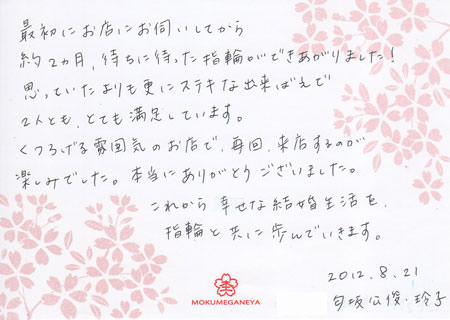 最初にお店にお伺いしてから
約2カ月、待ちに待った指輪ができあがりました!
思っていたよりも更にステキな出来ばえで
2人とも、とても満足しています。
くつろげる雰囲気のお店で、毎回、来店するのが
楽しみでした。本当にありがとうございました。
これから幸せな結婚生活を、
指輪と共に歩んでいきます。
2012.8.21
匂坂公俊・玲子
MOKUMEGANEYA